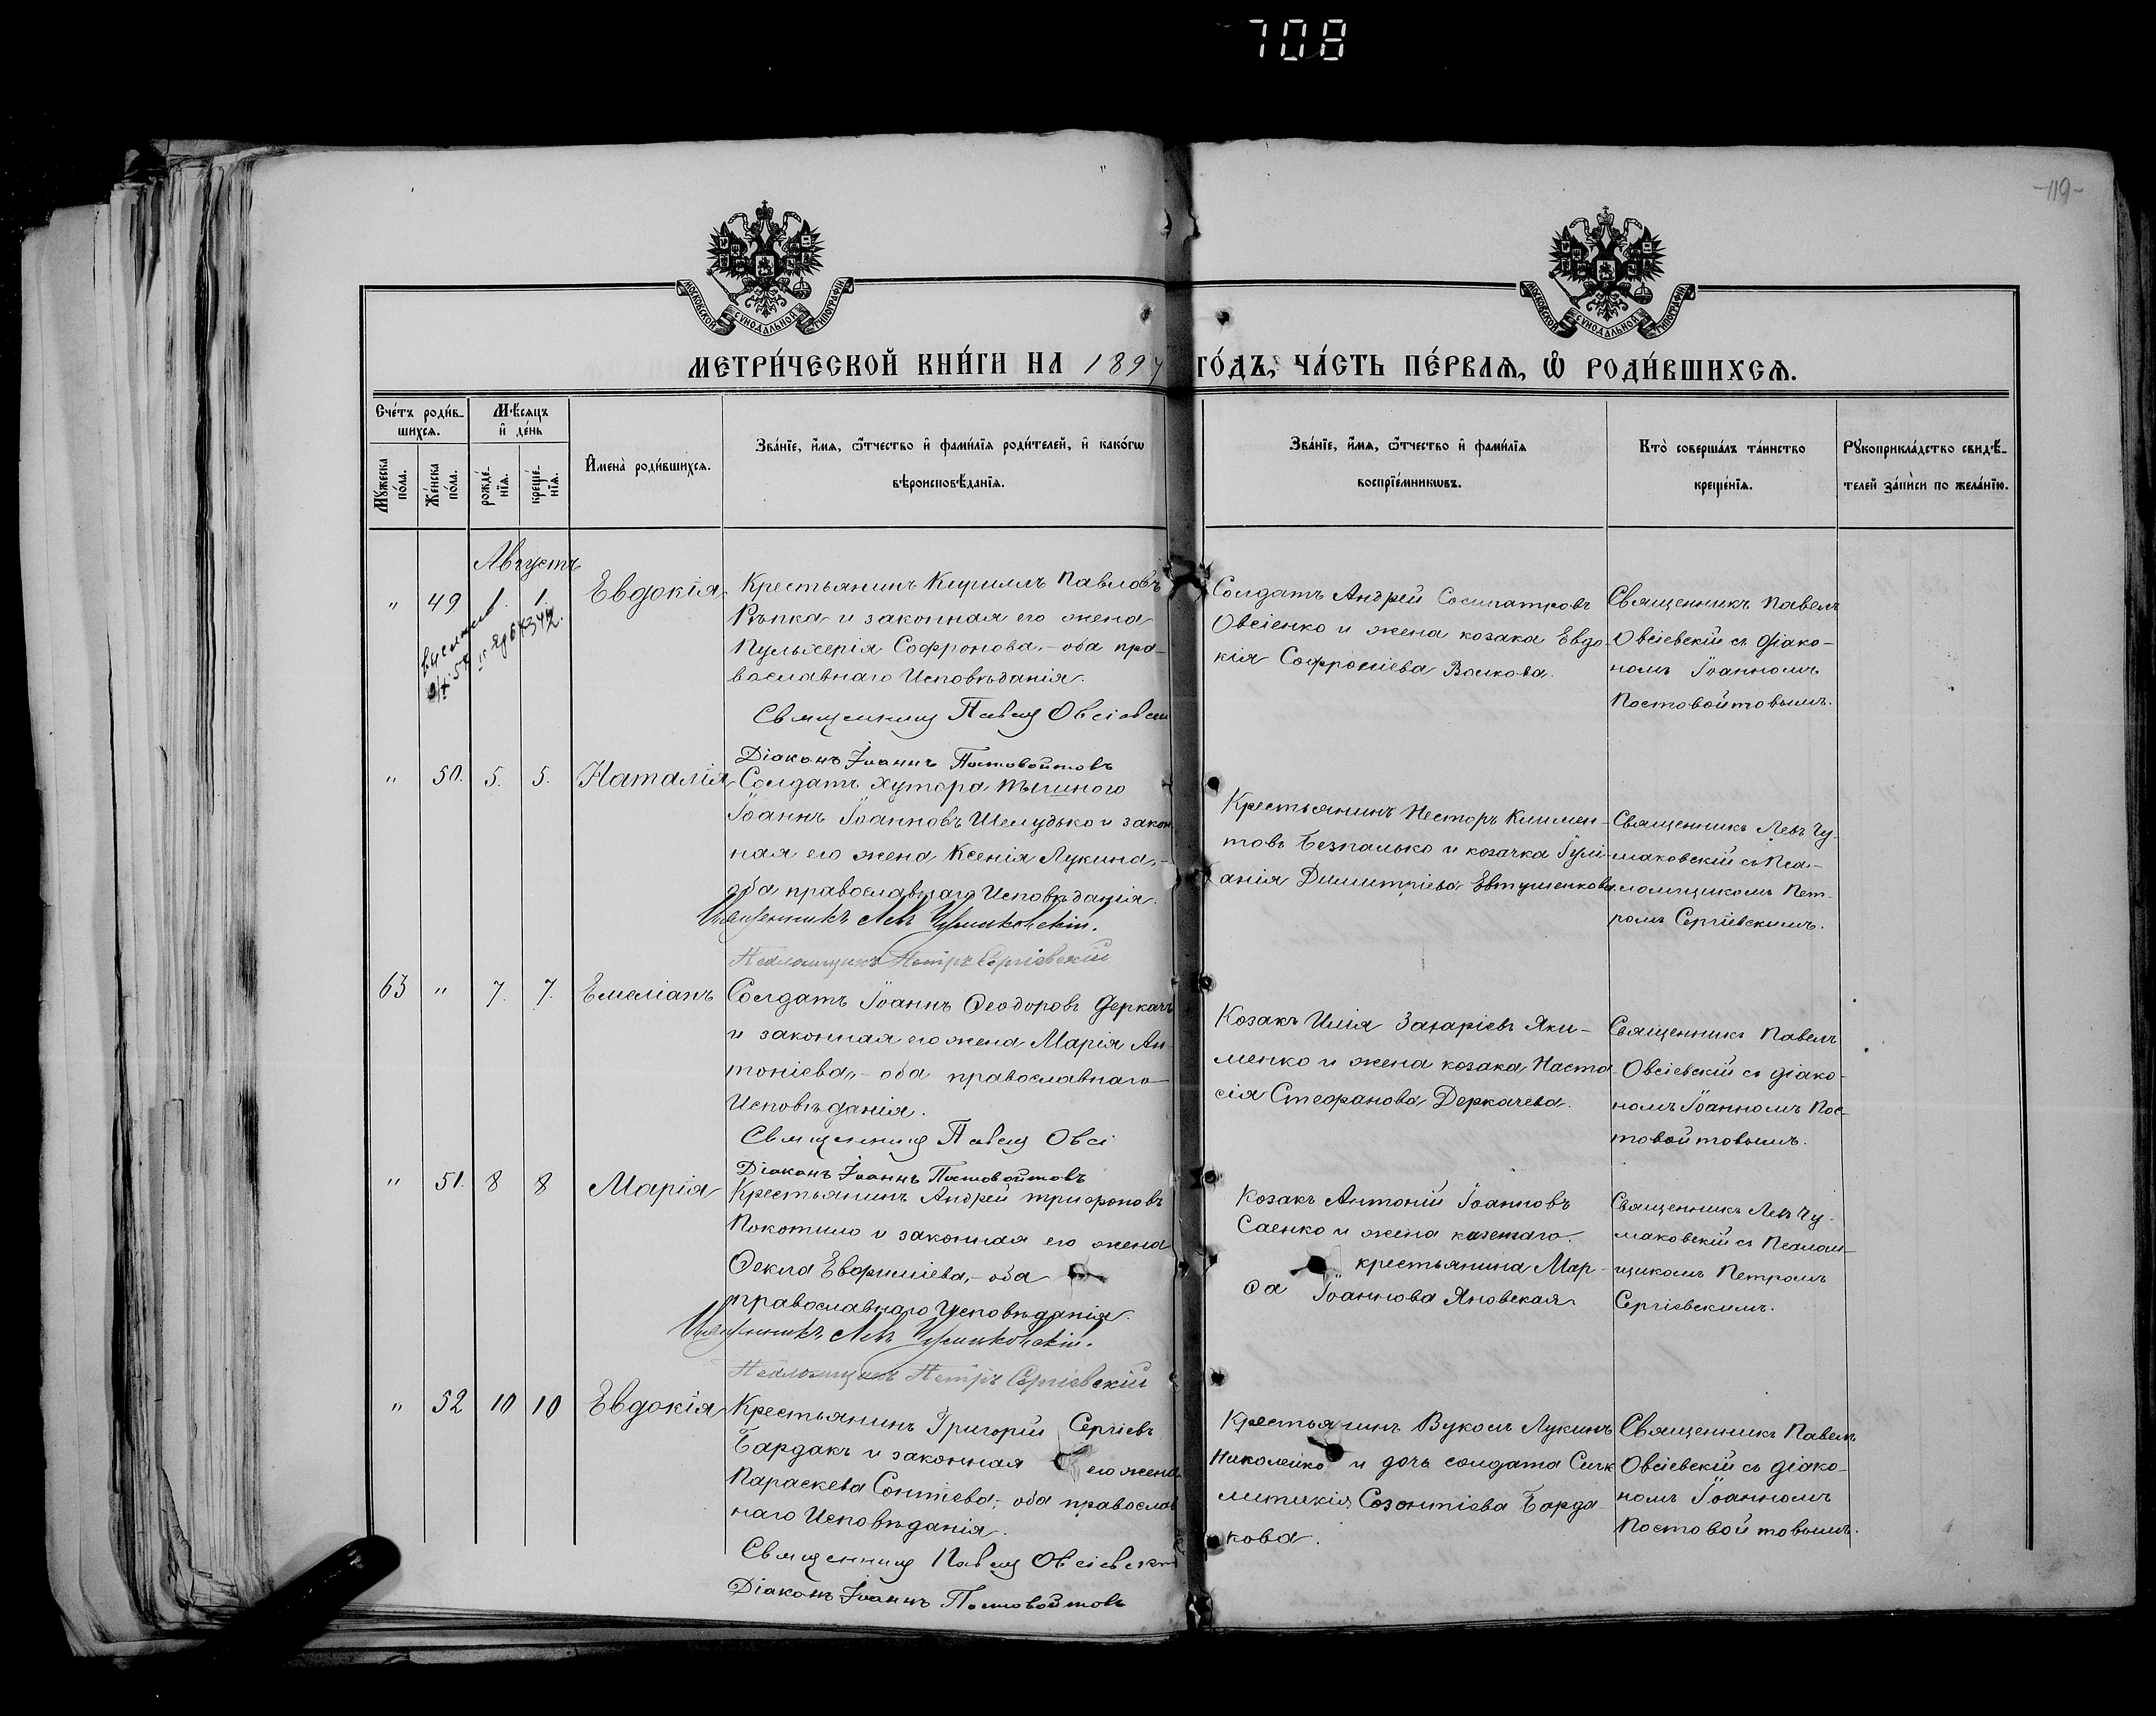 708
-119-
МОСКОВСКОЙ СѴНОДАЛЬНОЙ ТИПОГРАФІИ
МОСКОВСКОЙ СѴНОДАЛЬНОЙ ТИПОГРАФІИ
МЕТРИ́ЧЕСКОЙ КНИ́ГИ НА 1897 ГО́ДЪ, ЧА́СТЬ ПЕ́РВАѦ, Ѡ РОДИ́ВШИХСѦ.
Сче́тъ роди́вшихсѧ.
Мꙋ́жеска по́ла.
Же́нска по́ла.
Мѣ́сѧцъ и҆ де́нь
рожде́нїѧ.
креще́нїѧ.
И҆мена̀ роди́вшихсѧ.
Зва́нїе, и҆́мѧ, ѿтчество и҆ фами́лїѧ роди́телей, и҆ како́гѡ
вѣроисповѣ́данїѧ.
Зва́нїе, и҆́мѧ, ѿтчество и҆ фами́лїѧ
воспрїе́мникѡвъ.
Кто̀ соверша́лъ та́инство
креще́нїѧ.
Рꙋкоприкла́дство свидѣ́-
телей за́писи по жела́нїю.
Августъ
" 49 1. 1. Евдокія
Крестьянинъ Кириллъ Павловъ
Рѣпка и законная его жена
Пульхерія Софронова,- оба пра-
вославнаго Исповѣданія.
Священникъ Павелъ Овсіевскій
Діаконъ Іоаннъ Постовойтовъ
Солдатъ Андрей Сосипатровъ
Овсіенко и жена козака Евдо-
кія Софроніева Волкова.
Священникъ Павелъ
Овсіевскій съ діако-
номъ Іоанномъ
Постовойтовымъ.
" 50. 5. 5. Наталія
Солдатъ хутора
Іоаннъ Іоанновъ Шелудько и закон
ная его жена Ксенія Лукина,-
оба православнаго Исповѣданія.
Священникъ Левъ Чумаковскій.
Псаломщикъ Петръ Сергіевскій
Крестьянинъ Несторъ Климен-
товъ Безпалько и козачка Іулі-
анія Димитріева Евтушенкова
Священникъ Левъ Чу-
маковскій съ Пса-
ломщикомъ Пет-
ромъ Сергіевскимъ.
63 " 7. 7. Емеліанъ
Солдатъ Іоаннъ Ѳеодоровъ Деркачъ
и законная его жена Марія Ан-
тоніева,- оба православнаго
Исповѣданія.
Священникъ Павелъ Овсі
Діаконъ Іоаннъ Постовойтовъ
Козакъ Илія Захаріевъ Яки-
менко и жена козака Наста-
сія Стефанова Деркачева.
Священникъ Павелъ
Овсіевскій съ діако-
номъ Іоанномъ Пос-
товойтовымъ.
" 51. 8 8 Марія
Крестьянинъ Андрей Трифоновъ
Покотило и законная его жена
Ѳекла Евфиміева,- оба
православнаго Исповѣданія.
Священникъ Левъ Чумаковскій.
Псаломщикъ Петръ Сергіевскій
Козакъ Антоній Іоанновъ
Саенко и жена
крестьянина Мар-
ѳа Іоаннова Яновская.
Священникъ Левъ Чу-
маковскій съ Псалом-
щикомъ Петромъ
Сергіевскимъ.
" 52 10 10 Евдокія
Крестьянинъ Григорій Сергіевъ
Бардакъ и законная его жена
Параскева Сонтіева,- оба православ
наго Исповѣданія.
Священникъ Павелъ Овсіевскій
Діаконъ Іоаннъ Постовойтовъ
Крестьянинъ Вуколъ Лукинъ
Николенко и дочь солдата Синк
литикія Созонтіева Барда-
кова.
Священникъ Павелъ
Овсіевскій съ діако-
номъ Іоанномъ
Постовойтовымъ.